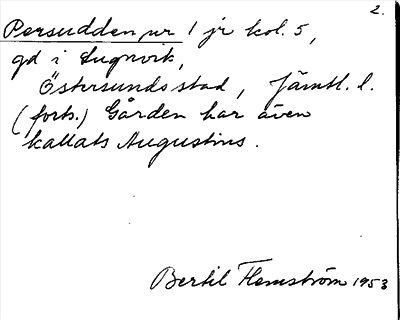 2.
Persudden nr 1 jr kol. 5,
gd i Lugnvik,
Östersunds stad, Jämtl. l.
(forts.) Gården har även
kallats Augustins.
Bertil Flemström 1953